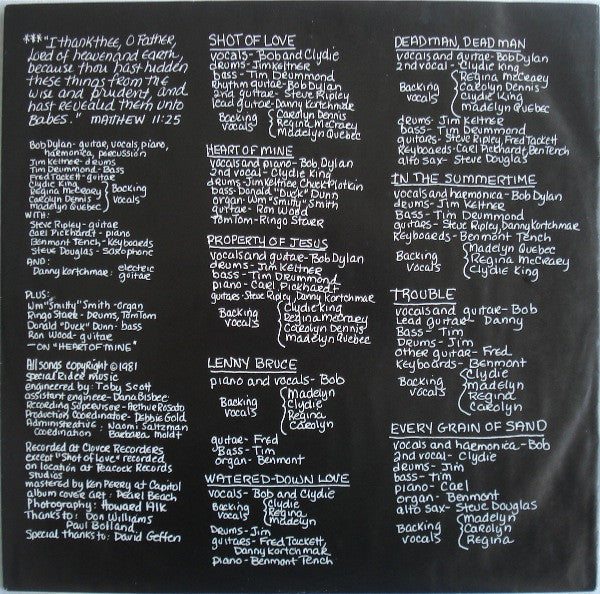 ***"I thank thee, O Father,
lord of heaven and Earth,
because thou hast hidden
these things from the
wise and prudent, and
hast revealed them unto
Babes." MATTHEW 11:25
Bob Dylan- guitar, vocals, piano,
harmonica, percussion
Jim Keltner- drums
Tim Drummond- Bass
Fred Tackett- guitar
Clydie King
Regina McCreary
Carolyn Dennis
Madelyn Quebec
Backing
vocals
WITH:
Steve Ripley- guitar
Carl Pickhardt- piano
Benmont Tench- Keyboards
Steve Douglas- Saxophone
AND:
Danny Kortchmar: electric
guitar
PLUS:
Wm "Smitty" Smith -organ
Ringo Starr- Drums, Tom Tom
Donald "Duck" Dunn- bass
Ron Wood- guitar
—ON "HEART OF MINE"
All songs copyright © 1981
special Rider Music
engineered by: Toby Scott
assistant engineer- Dana Bisbee
Recording Supervisor- Arthur Rosato
Production Coordinator- Debbie Gold
Administrative : Naomi Saltzman
coordination Barbara Moldt
Recorded at Clover Recorders
except "Shot of Love" recorded
on location at Peacock Records
Studios
mastered by Ken Perry at Capitol
album cover art: Pearl Beach
Photography: Howard Alk
Thanks to: Don Williams
Paul Bolland
Special thanks to: David Geffen
SHOT OF LOVE
vocals- Bob and Clydie
drums- Jim Keltner
bass- Tim Drummond
Rhythm guitar- Bob Dylan
2nd guitar- Steve Ripley
lead guitar- Danny Kortchmar
Backing
vocals
Carolyn Dennis
Regina McCraey
madelyn Quebec
HEART OF MINE
vocals and piano- Bob Dylan
2nd vocal- Clydie King
drums- Jim Keltner Chuck Plotkin
Bass- Donald "Duck" Dunn
organ- Wm "Smitty" Smith
guitar- Ron Wood
Tom Tom- Ringo Starr
PROPERTY OF JESUS
vocals and guitar- Bob Dylan
drums- Jim Keltner
bass- Tim Drummond
piano- Carl Pickhardt
guitars- Steve Ripley, Danny Kortchmar
Backing
vocals
Clydie King
Regina McCraey
Carolyn Dennis
madelyn Quebec
LENNY BRUCE
piano and vocals- Bob
Backing
vocals
madelyn
Clydie
Regina
Carolyn
guitar- Fred
Bass- Tim
organ- Benmont
WATERED-DOWN LOVE
vocals- Bob and Clydie
Backing
vocals
Clydie
Regina
madelyn
Drums- Jim
guitars- Fred Tackett,
Danny Kortchmar
piano- Benmont Tench
DEAD MAN, DEAD MAN
vocals and guitar- Bob Dylan
2nd vocal- Clydie King
Backing
vocals
Regina McCreary
Carolyn Dennis
Clydie King
madelyn Quebec
drums- Jim Keltner
bass- Tim Drummond
guitars- Steve Ripley, Fred Tackett
Keyboards- Carl Pickhardt, Ben Tench
alto sax- Steve Douglas
IN THE SUMMERTIME
vocals and harmonica- Bob Dylan
drums- Jim Keltner
Bass- Tim Drummond
guitars- Steve Ripley, Danny Kortchmar
Keyboards- Benmont Tench
Backing
vocals
Madelyn Quebec
Regina McCreary
Clydie King
TROUBLE
vocals and guitar- Bob
Lead guitar- Danny
Bass- Tim
Drums- Jim
other guitar- Fred
Keyboards- Benmont
Backing
vocals
Clydie
madelyn
Regina
Carolyn
EVERY GRAIN OF SAND
vocals and harmonica- Bob
2nd vocal- Clydie
drums- Jim
bass- Tim
piano- Carl
organ- Benmont
alto sax- Steve Douglas
Backing
vocals
madelyn
Carolyn
Regina